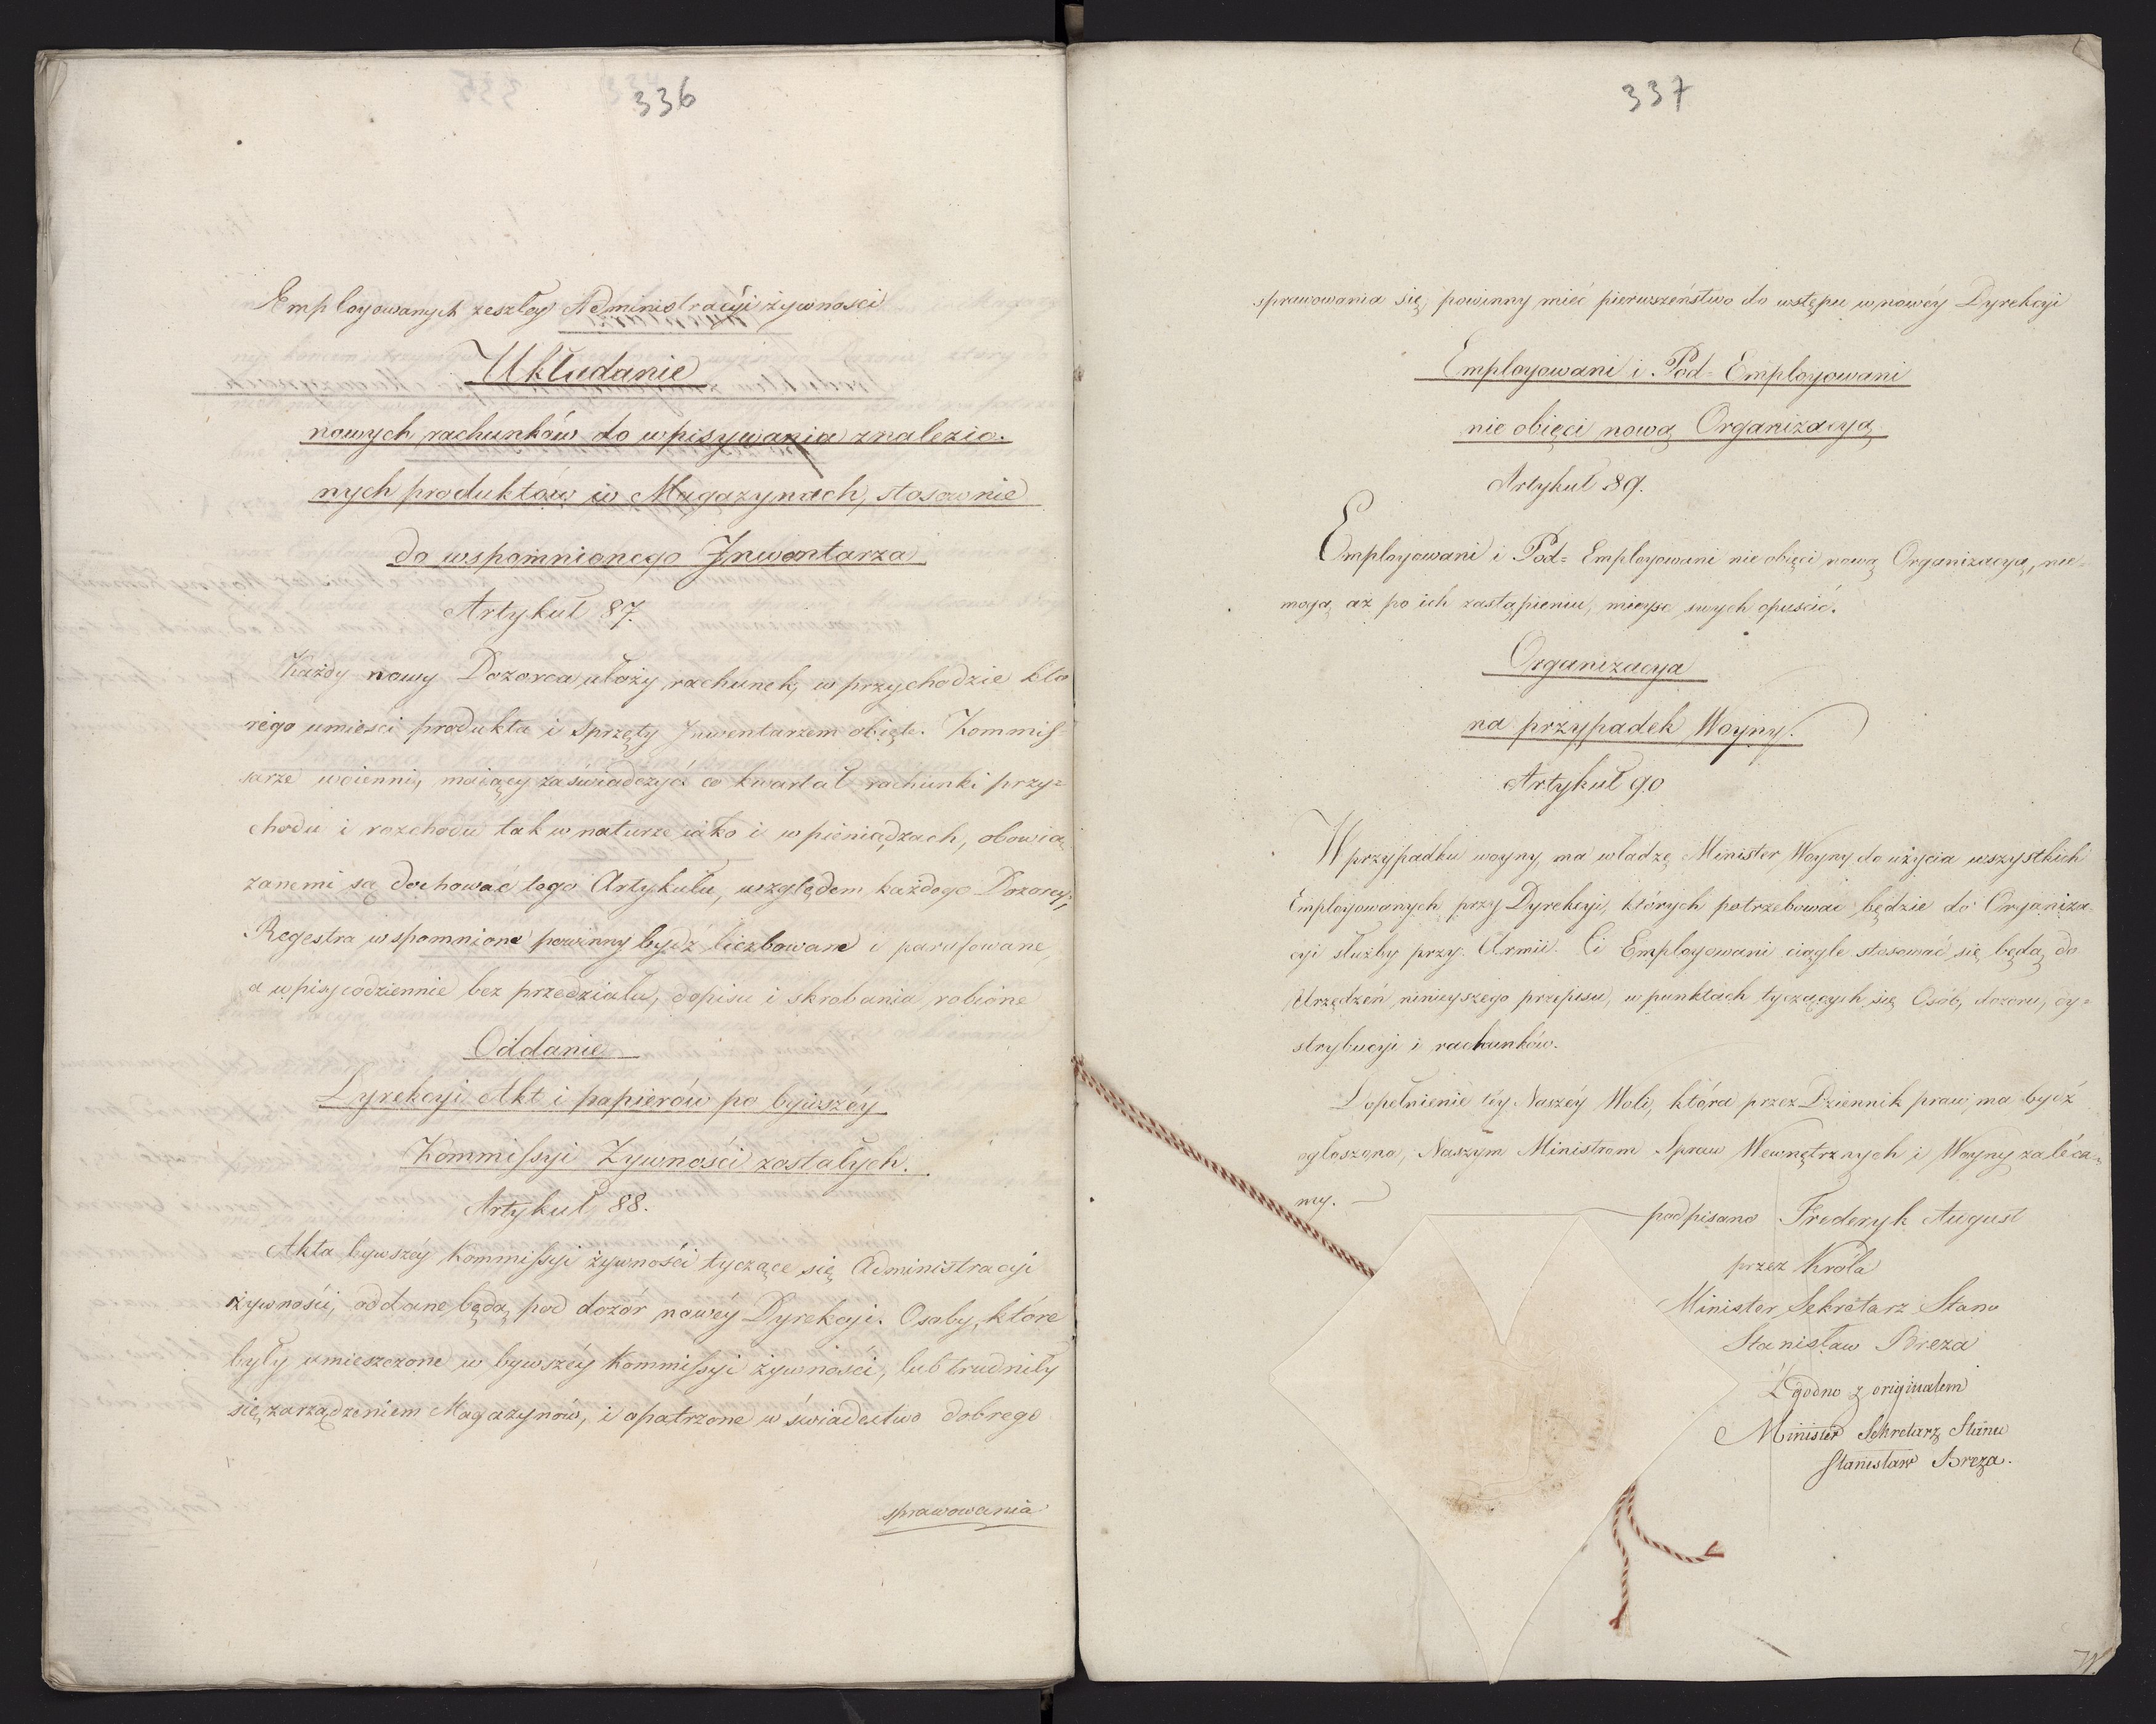 336
Employowanych zeszłey Administracyi żywności
Układanie
nowych rachunków do wpisywania znalezio-
nych produktów w Magazynach, stosownie
do wspomnionego Inwentarza
Artykuł 87.
Każdy nowy Dozorca ułoży rachunek, w przychodzie któ
rego umieści produkta i sprzęty Inwentarzem obięte. Kommis-
sarze woienni, maiący zaświadczyć co kwartał rachunki przy=
chodu i rozchodu tak w naturze iako i w pieniądzach, obowią
zanemi są dochować tego Artykułu, względem każdego Dozorcy,
Regestra wspomnione powinny bydź liczbowane i parafowane,
a wpisy codziennie bez przedziału, dopisu i skrobania robione
Oddanie
Dyrekcyi Akt i papierów po bywszéy
Kommissyi Żywności zostałych.
Artykuł 88.
Akta bywszéy Kommissyi żywności tyczące się Administracyi
żywności, oddane będą pod dozór nowéy Dyrekcyi. Osoby, które
były umieszczone w bywszéy Kommissyi żywności, lub trudniły
się zarządzeniem Magazynów, i opatrzone w świadectwo dobrego
sprawowania
337
sprawowania się, powinny mieć pierwszeństwo do wstępu w nowéy Dyrekcyi
Employowani i Pod=Employowani
nie obięci nową Organizacyą
Artykuł 89.
Employowani i Pod=Employowani nie obięci nową Organizacyą, nie-
mogą aż po ich zastąpieniu, mieysc swych opuścić.
Organizacya
na przypadek Woyny.
Artykuł 90
W przypadku woyny, ma władzę Minister Woyny do użycia wszystkich
Employowanych przy Dyrekcyi, których potrzebować będzie do Organiza
cyi służby przy Armii. Ci Employowani ciągle stosować się będą do
Urządzeń ninieyszego przepisu, w punktach tyczących się Osób, dozoru, dy=
strybucyi i rachunków.
Dopełnienie téy Naszéy Woli, która przez Dziennik praw ma bydź
ogłoszona, Naszym Ministrom Spraw Wewnętrznych i Woyny zaléca-
my.
podpisano Frederyk August
przez Króla
Minister Sekretarz Stanu
Stanisław Breza
Zgodno z originałem
Minister Sekretarz Stanu
Stanisław Breza.